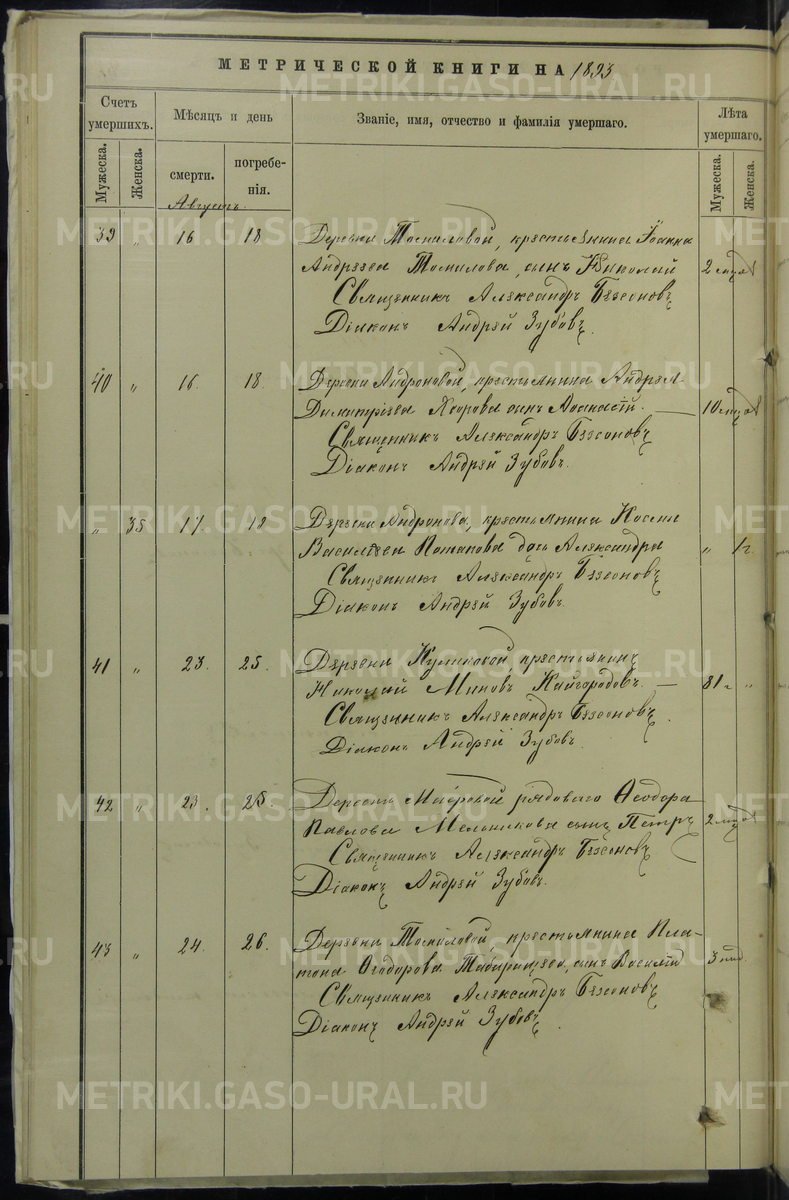 МЕТРИЧЕСКОЙ КНИГИ НА 1893
Счетъ умершихъ.
Мѣсяцъ и день
Званіе, имя, отчество и фамилія умершаго.
Лѣта умершаго.
Мужеска.
Женска.
смерти.
погребенія.
Мужеска.
Женска.
Августъ.
39 " 16 18 Деревни Томиловой, крестьянина Іоанна
Андреева Томилова, сынъ Николай 2 мѣд
Священникъ Александръ Безсоновъ
Діаконъ Андрей Зубовъ.
40 " 16. 18. Деревни Андроновой, крестьянина Андрея
Димитріева сынъ Аѳанасій. 10
Священникъ Александръ Безсоновъ
Діаконъ Андрей Зубовъ.
" 35 17 18 Деревни Андронова, крестьянина Космы
Васильева Потапова дочь Александра " 1 г.
Священникъ Александръ Безсоновъ
Діаконъ Андрей Зубовъ.
41 " 23. 25. Деревни Куликовой, крестьянинъ
Николай Миновъ Кайгородовъ. 81 "
Священникъ Александръ Безсоновъ.
Діаконъ Андрей Зубовъ.
42 " 23. 25. Деревни рядоваго Ѳеодора
Павлова Мельникова сынъ Петръ 2
Священникъ Александръ Безсоновъ
Діаконъ Андрей Зубовъ.
43 " 24. 26. Деревни Томиловой, крестьянина Пла-
тона Ѳеодорова сынъ Василій 3
Священникъ Александръ Безсоновъ
Діаконъ Андрей Зубовъ.
METRIKI.GASO-URAL.RU